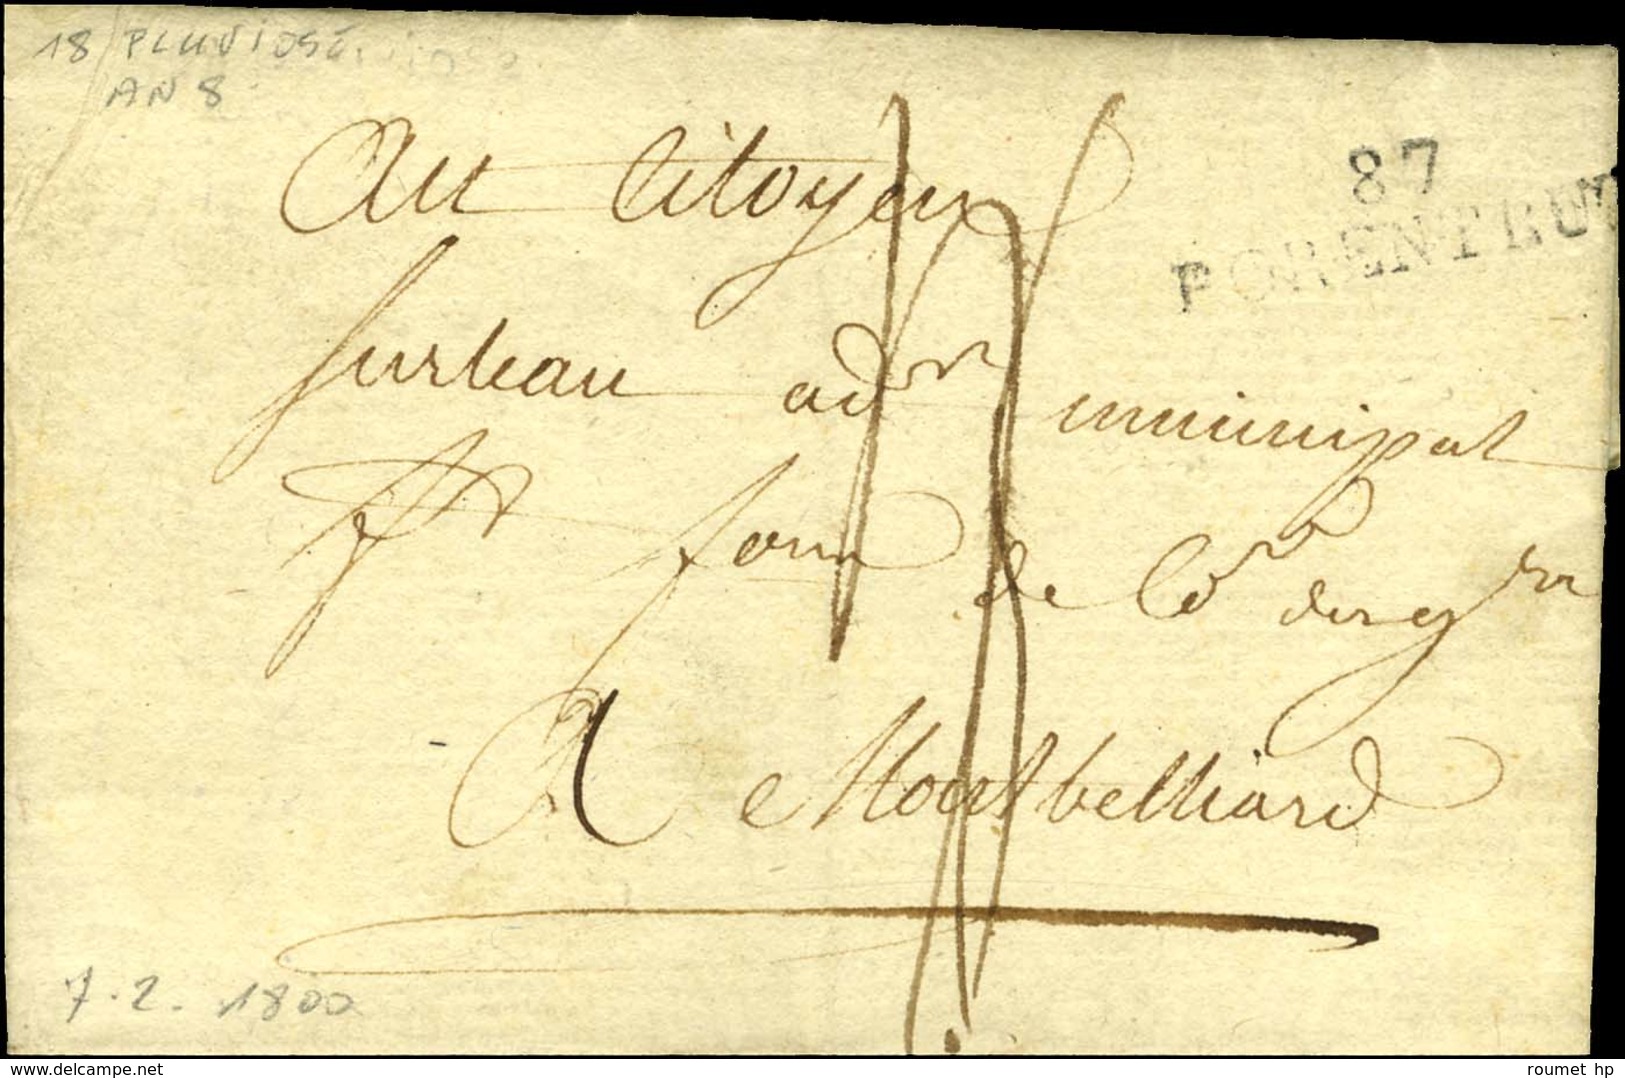 18 PLUVIOSE
AN 8
87
PORENTRUY
Au Citoyen
Surleau adr municipal
de
A Montbelliard
7.2.1800
www.delcampe.net
roumet hp